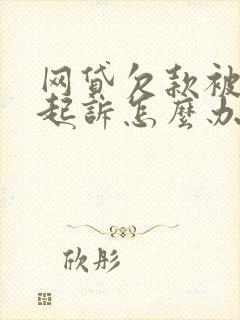 网贷欠款被
起訴怎麼办
欣彤